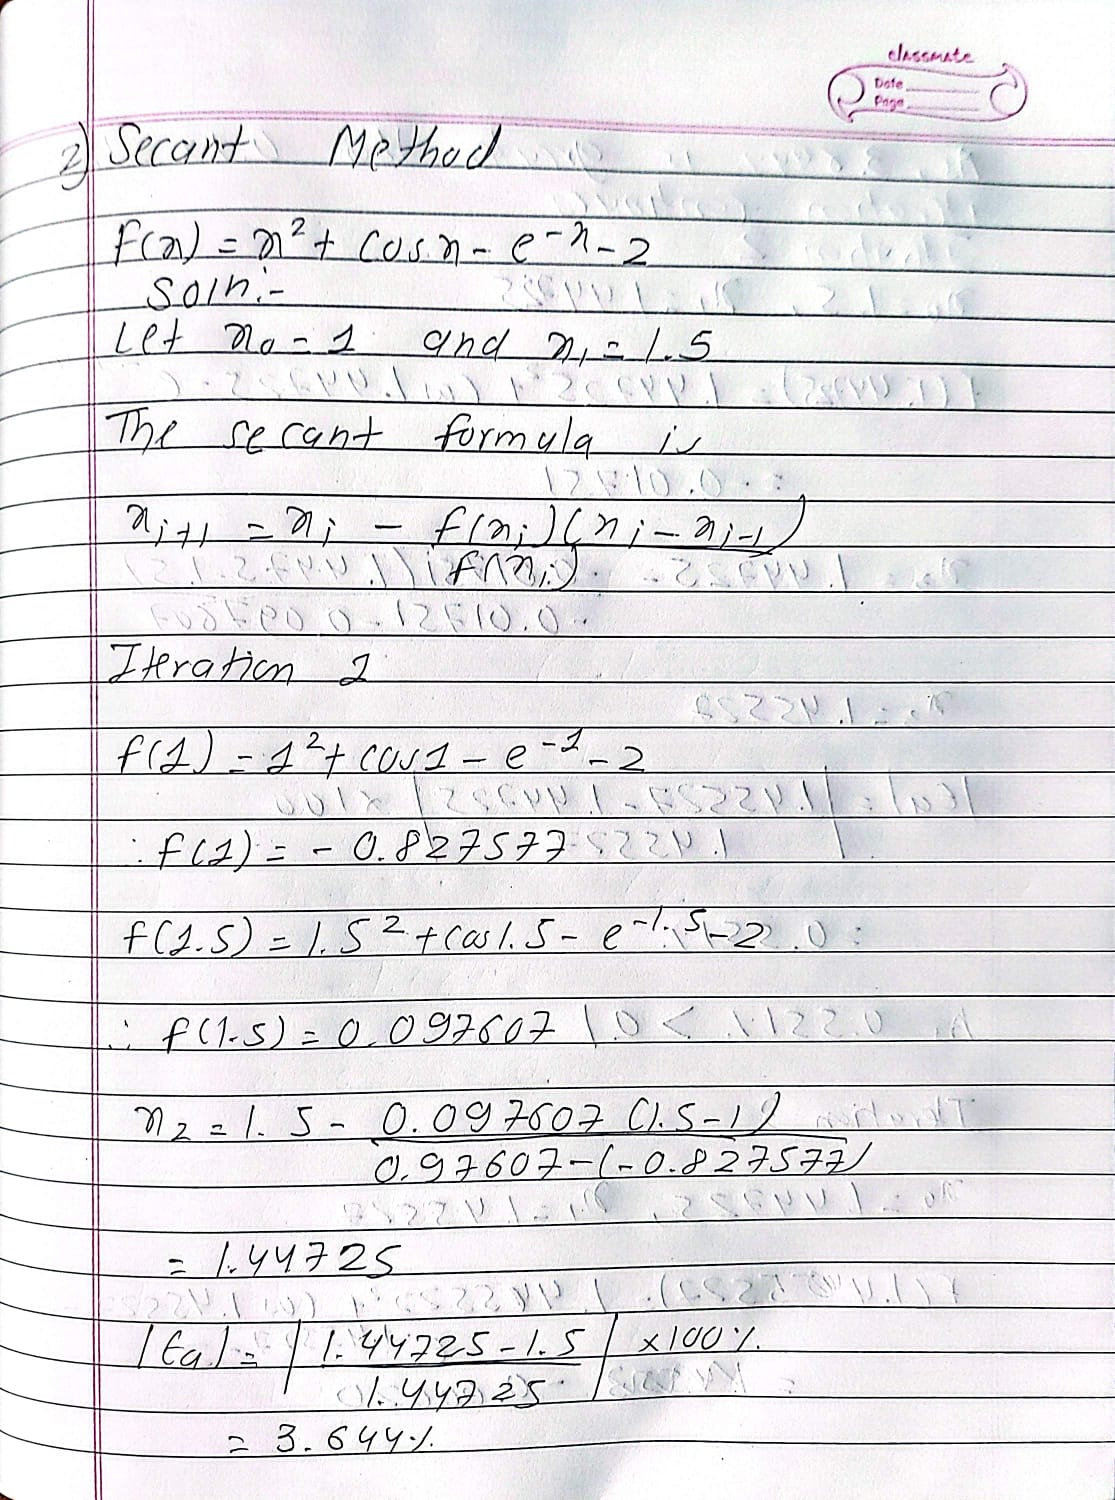 classmate
Date
Page
2) Secant Method
f(x) = x² + cosx - e^-x - 2
Soln:-
Let x₀ = 1 and x₁ = 1.5
The secant formula is
xᵢ₊₁ = xᵢ - f(xᵢ)(xᵢ - xᵢ₋₁)
f(xᵢ)
Iteration 1
f(1) = 1² + cos1 - e^-1 - 2
∴ f(1) = - 0.827577
f(1.5) = 1.5² + cos1.5 - e^-1.5 - 2
∴ f(1.5) = 0.097607
x₂ = 1.5 - 0.097607 (1.5-1)
0.97607-(-0.827577)
= 1.44725
|Ea| = |1.44725 - 1.5| ×100%
1.44725
= 3.644%